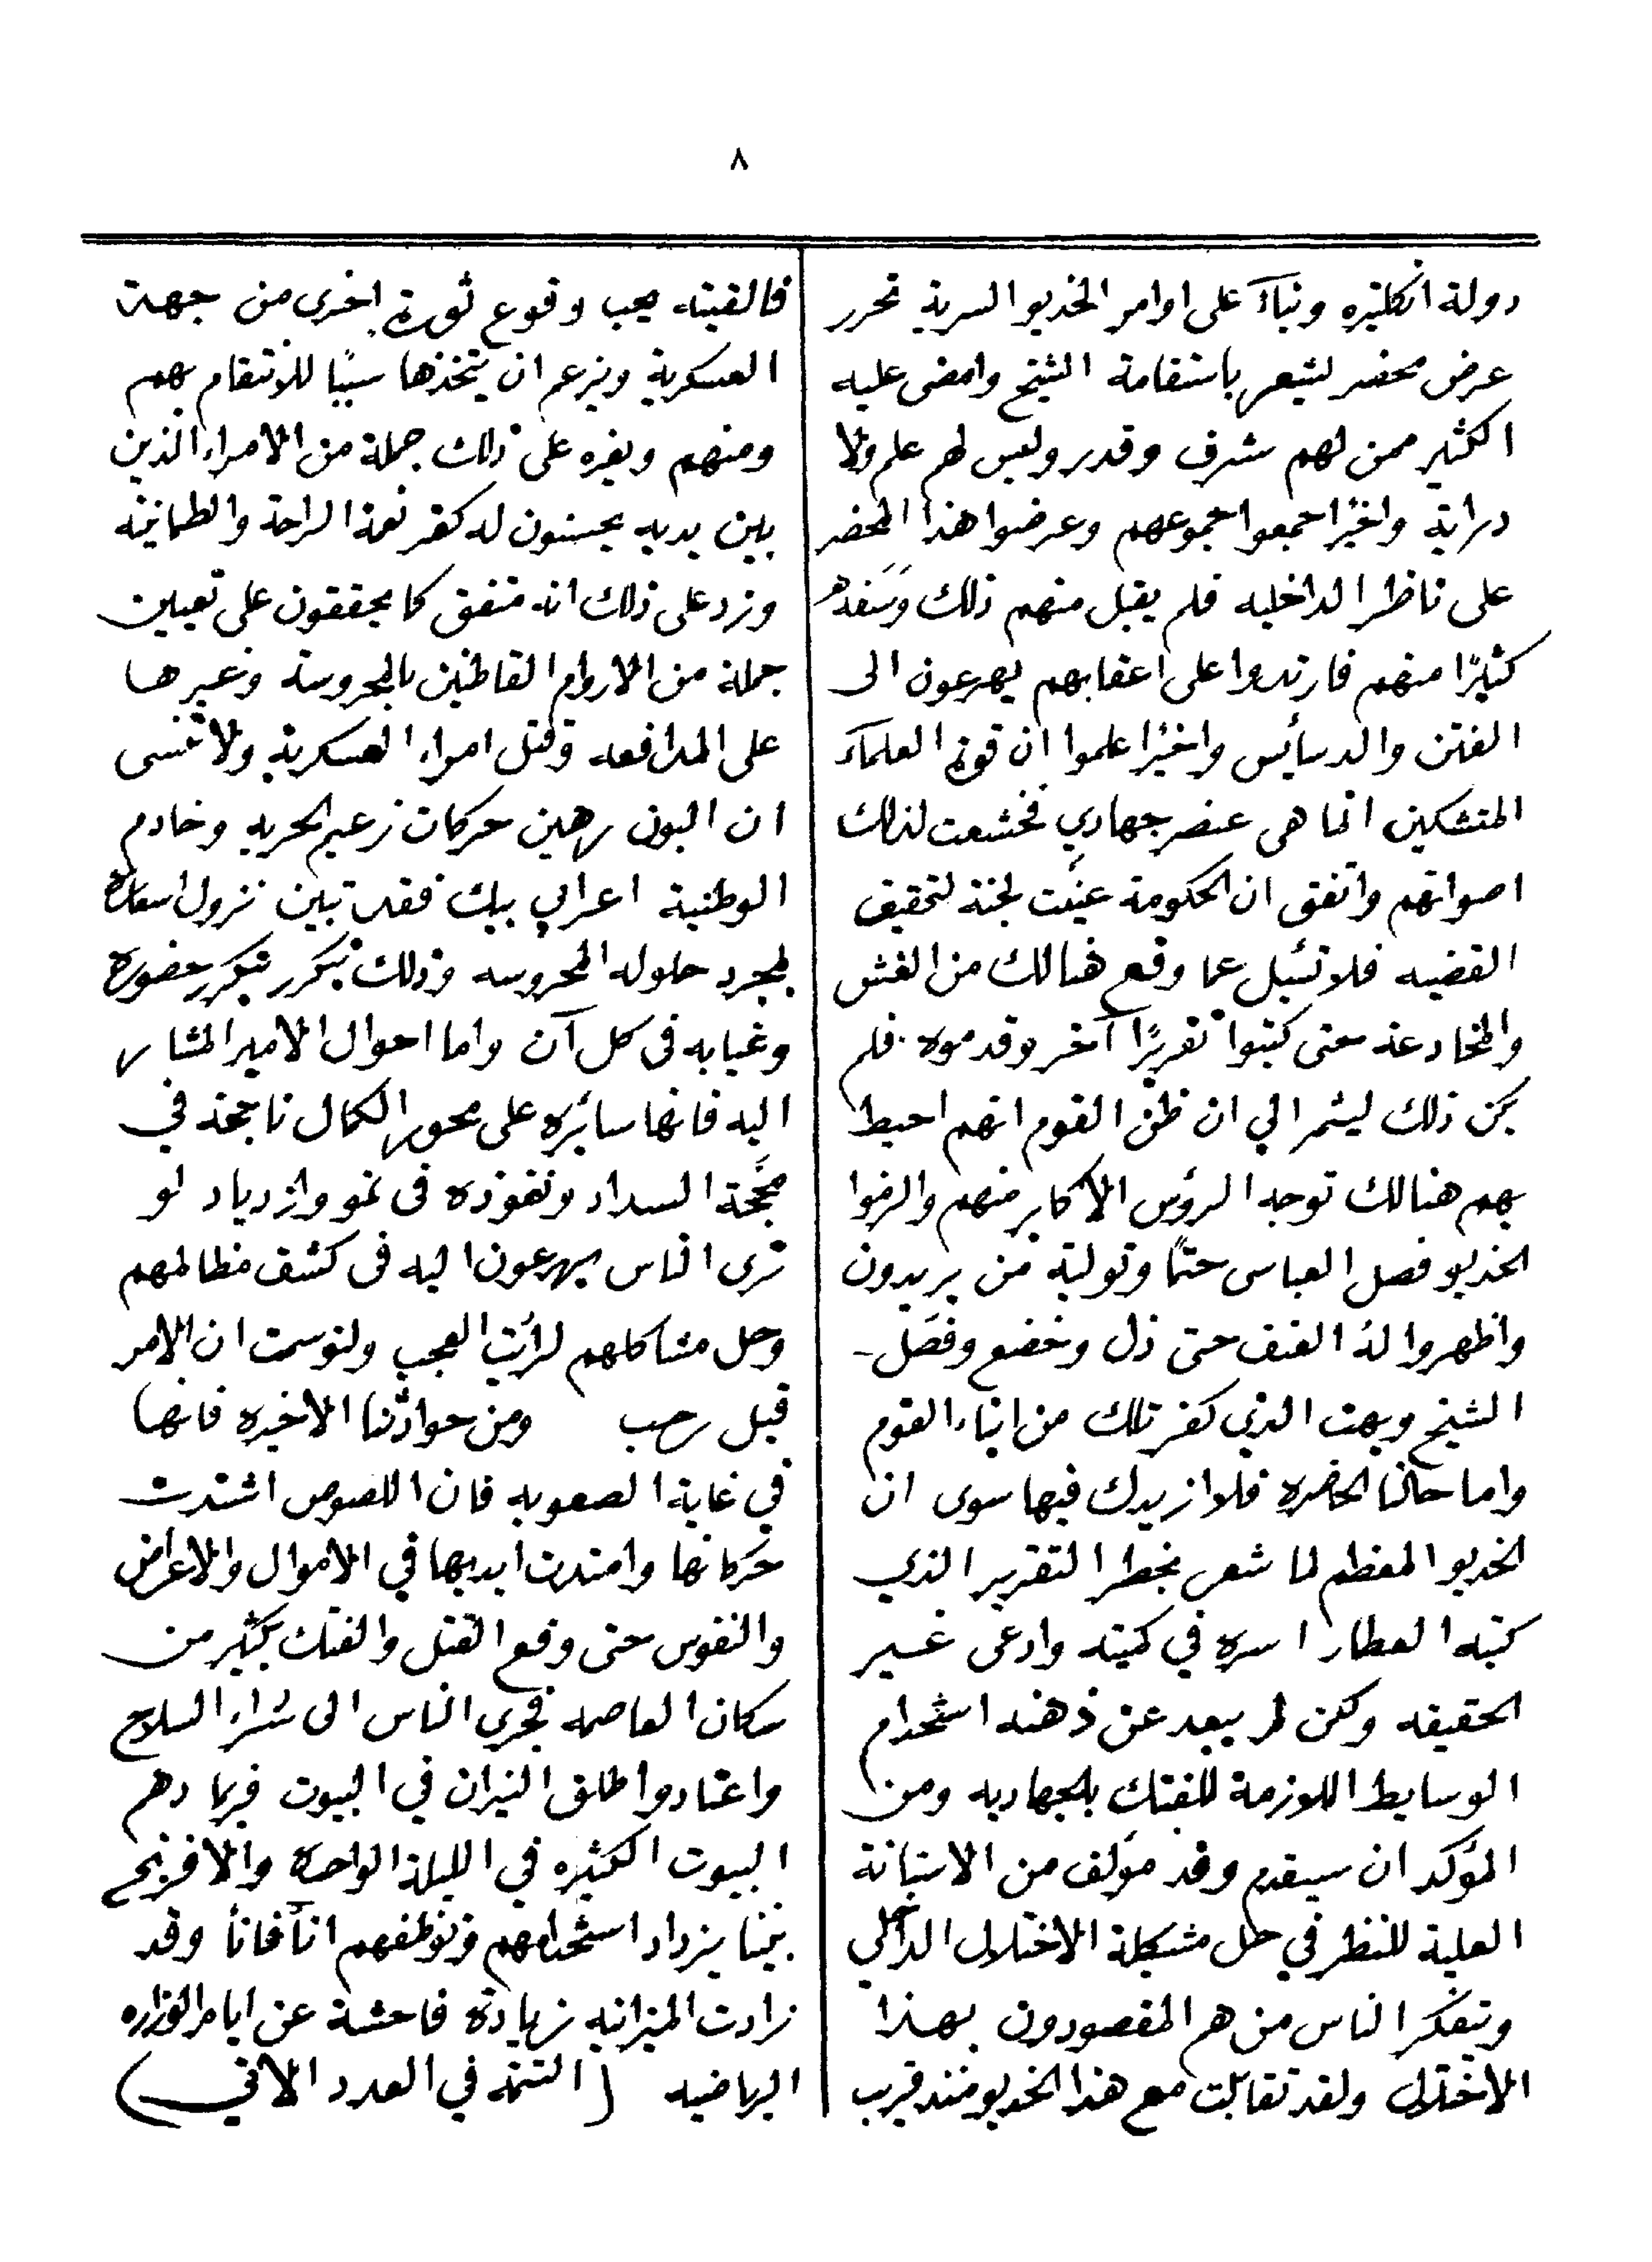 ٨
دولة انكلتيره وبناءً على اوامر الخديو السرية تحرر
عرض محضر لشعر باستقامة الشيخ وامضى عليه
الكثير ممن لهم شرف وقدر وليس لهم علم ولا
دراية واخيرًا جمعوا جموعهم وعرضوا هذا المحضر
على ناظر الداخليه فلم يقبل منهم ذلك وسفه
كثيرًا منهم فارتدوا على اعقابهم يهرعون الى
الفتن والدسأيس واخيرًا علموا ان قوة العلمآء
المتشكين انما هى عنصر جهادي فخشعت لذلك
اصواتهم واتفق ان الحكومة عيَّنت لجنة لتحقيق
القضيه فلا تسئل عما وقع هنالك من الغش
والمخادعة حتى كتبوا تقريرًا آخر وقدموه فلم
يكن ذلك ليثمر الي ان ظن القوم انهم احيط
بهم هنالك توجه الرؤس الاكابر منهم والزموا
الخديو فصل العباسى حتمًا وتولية من يريدون
واظهروا له العنف حتى ذل وخضع وفصَل
الشيخ وبهت الذي كفر تلك من انباء القوم
واما حالنا الحاضره فلا ازيدك فيها سوى ان
الخديو المعظم لما شعر بخطر التقرير الذي
كتبه العطار اسره في كميته وادعى غير
الحقيقه ولكن لم يبعد عن ذهنه استخدام
الوسايط اللازمة للفتك بالجهاديه ومن
المؤكد ان سيقدم وفد مؤلف من الاستانة
العلية للنظر في حل مشكلة الاختلال الداخلي
وتفكر الناس من هم المقصودون بهذا
الاختلال ولقد تقابلت مع هذا الخديو منذ قريب
فالفيته يحب وقوع ثورة اخرى من جهة
العسكرية ويزعم ان يتخذها سببًا للانتقام بهم
ومنهم ويغره على ذلك جملة من الامراء الذين
بين يديه يحسنون له كفر نعمة الراحة والطمانينه
وزد على ذلك انه متفق كما يحققون على تعيين
جملة من الاروام القاطنين بالمحروسة وغيرها
على المدافعه وقتل امراء العسكرية ولا تنسى
ان البون رهين حركات زعيم الحريه وخادم
الوطنية اعرابي بيك فقد تبين نزول اسعاره
لمجرد حلوله المحروسه وذلك يتكرر بتكرر حضوره
وغيابه فى كل آن واما احوال الامير المشار
اليه فانها سائره على محور الكمال ناجحة في
محجَّة السداد ونفوذه فى نمو وازدياد لو
ترى الناس يهرعون اليه فى كشف مظالمهم
وحل مشاكلهم لرأيت العجب ولتوسمت ان الامر
قبل رحب ومن حوادثنا الاخيره فانها
في غاية الصعوبه فان اللصوص اشتدت
حركاتها وامتدت ايديها في الاموال والاعراض
والنفوس حتى وقع القتل والفتك بكثير من
سكان العاصمه فجري الناس الى شراء السلاح
واعتادوا طلق النيران في البيوت فربما دهم
البيوت الكثيره في الليلة الواحدة والافرنج
بيننا يزداد استخدامهم وتوظفهم انأ فانأ وقد
زادت الميزانيه زيادة فاحشة عن ايام الوزاره
الرياضيه (التتمة في العدد الاتي)